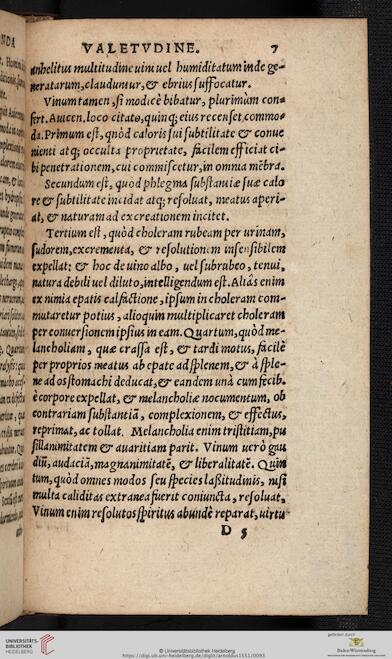 VALETVDINE. 7
anhelitus multitudine uini uel humiditatum inde ge-
neratarum, clauduntur, & ebrius suffocatur.
Vinum tamen, si modicè bibatur, plurimùm con-
fert. Auicen. loco citato, quinq; eius recenset commo-
da. Primum est, quòd caloris sui subtilitate & conue
nienti atq; occulta proprietate, facilem efficiat ci-
bi penetrationem, cui commiscetur, in omnia mēbra.
Secundum est, quod phlegma substantiæ suæ calo
re & subtilitate incidat atq; resoluat, meatus aperi-
at, & naturam ad excreationem incitet.
Tertium est, quòd choleram rubeam per urinam,
sudorem, excrementa, & resolutionem insensibilem
expellat: & hoc de uino albo, uel subrubeo, tenui,
natura debili uel diluto, intelligendum est. Aliâs enim
ex nimia epatis calfactione, ipsum in choleram com-
mutaretur potius, alioquin multiplicaret choleram
per conuersionem ipsius in eam. Quartum, quòd me-
lancholiam, quæ crassa est, & tardi motus, facilè
per proprios meatus ab epate ad splenem, & à sple-
ne ad os stomachi deducat, & eandem unà cum fecib.
è corpore expellat, & melancholiæ nocumentum, ob
contrariam substantiā, complexionem, & effectus,
reprimat, ac tollat. Melancholia enim tristitiam, pu
sillanimitatem & auaritiam parit. Vinum uerò gau
diū, audaciā, magnanimitatē, & liberalitatē. Quin
tum, quòd omnes modos seu species laßitudinis, nisi
multa caliditas extranea fuerit coniuncta, resoluat.
Vinum enim resolutos spiritus abundè reparat, uirtu
D 5
UNIVERSITÄTS-
BIBLIOTHEK
HEIDELBERG
© Universitätsbibliothek Heidelberg
https://digi.ub.uni-heidelberg.de/diglit/arnoldus1551/0093
gefördert durch
Baden-Württemberg